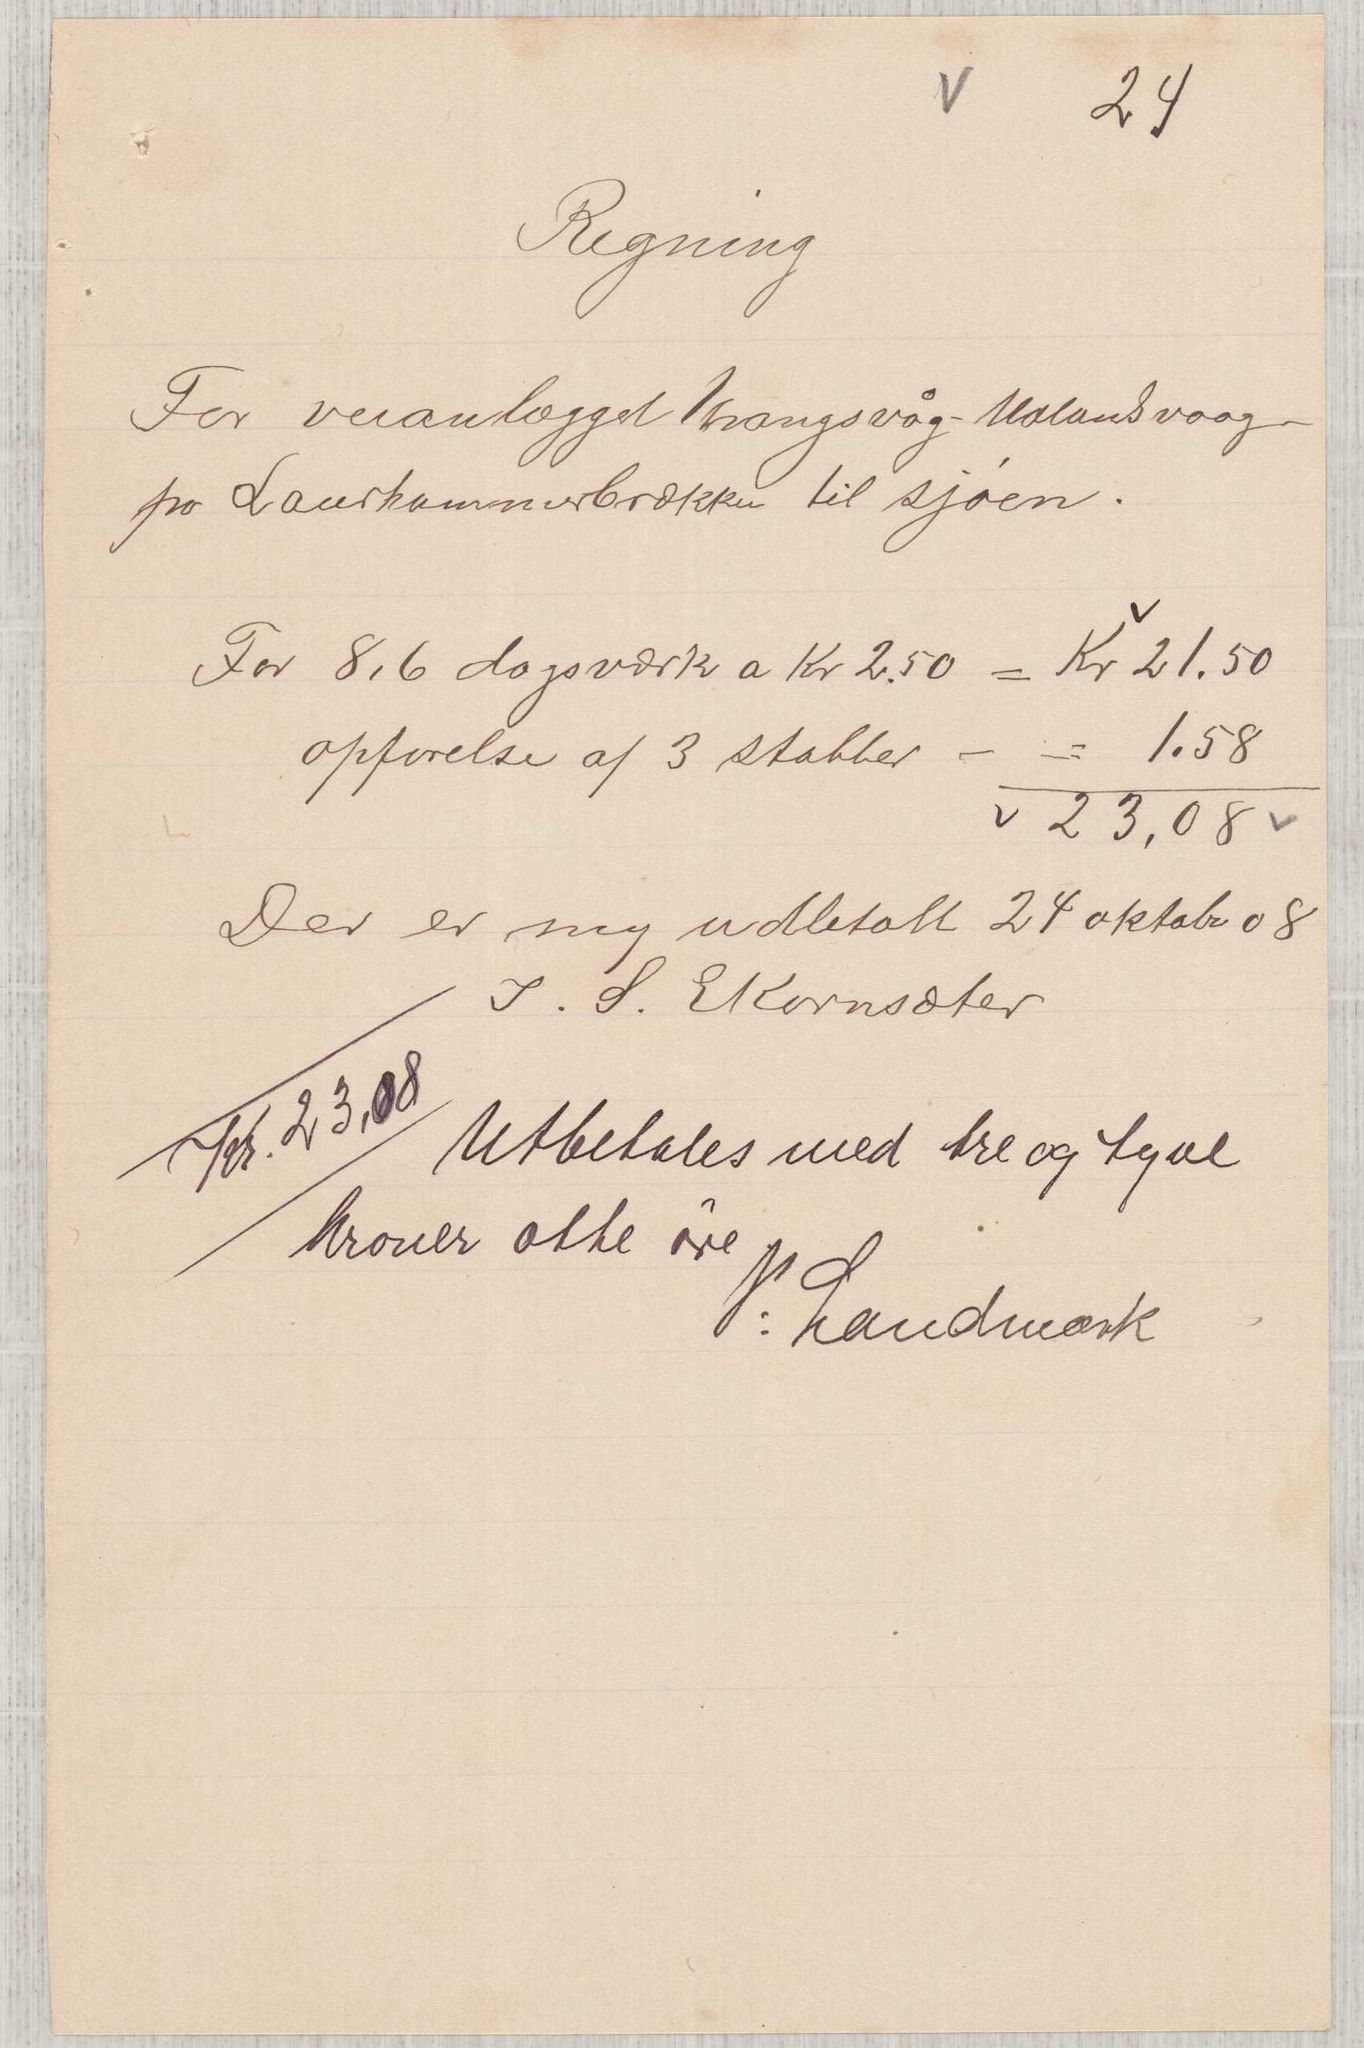 V 24
Regning
For veianlægget Vrangsvåg - Ualandsvaag -
fra Laurhammerbrækken til sjøen.
For 8,6 dagsværk a Kr 2.50 = Kr 21.50
opførelse af 3 stabber - = 1.58
23,08
Der er mig udbetalt 24 oktobr 08
S. S. Ekornsæter
Kr. 23,08 Utbetales med tre og tyve
kroner otte øre
N. Landmark